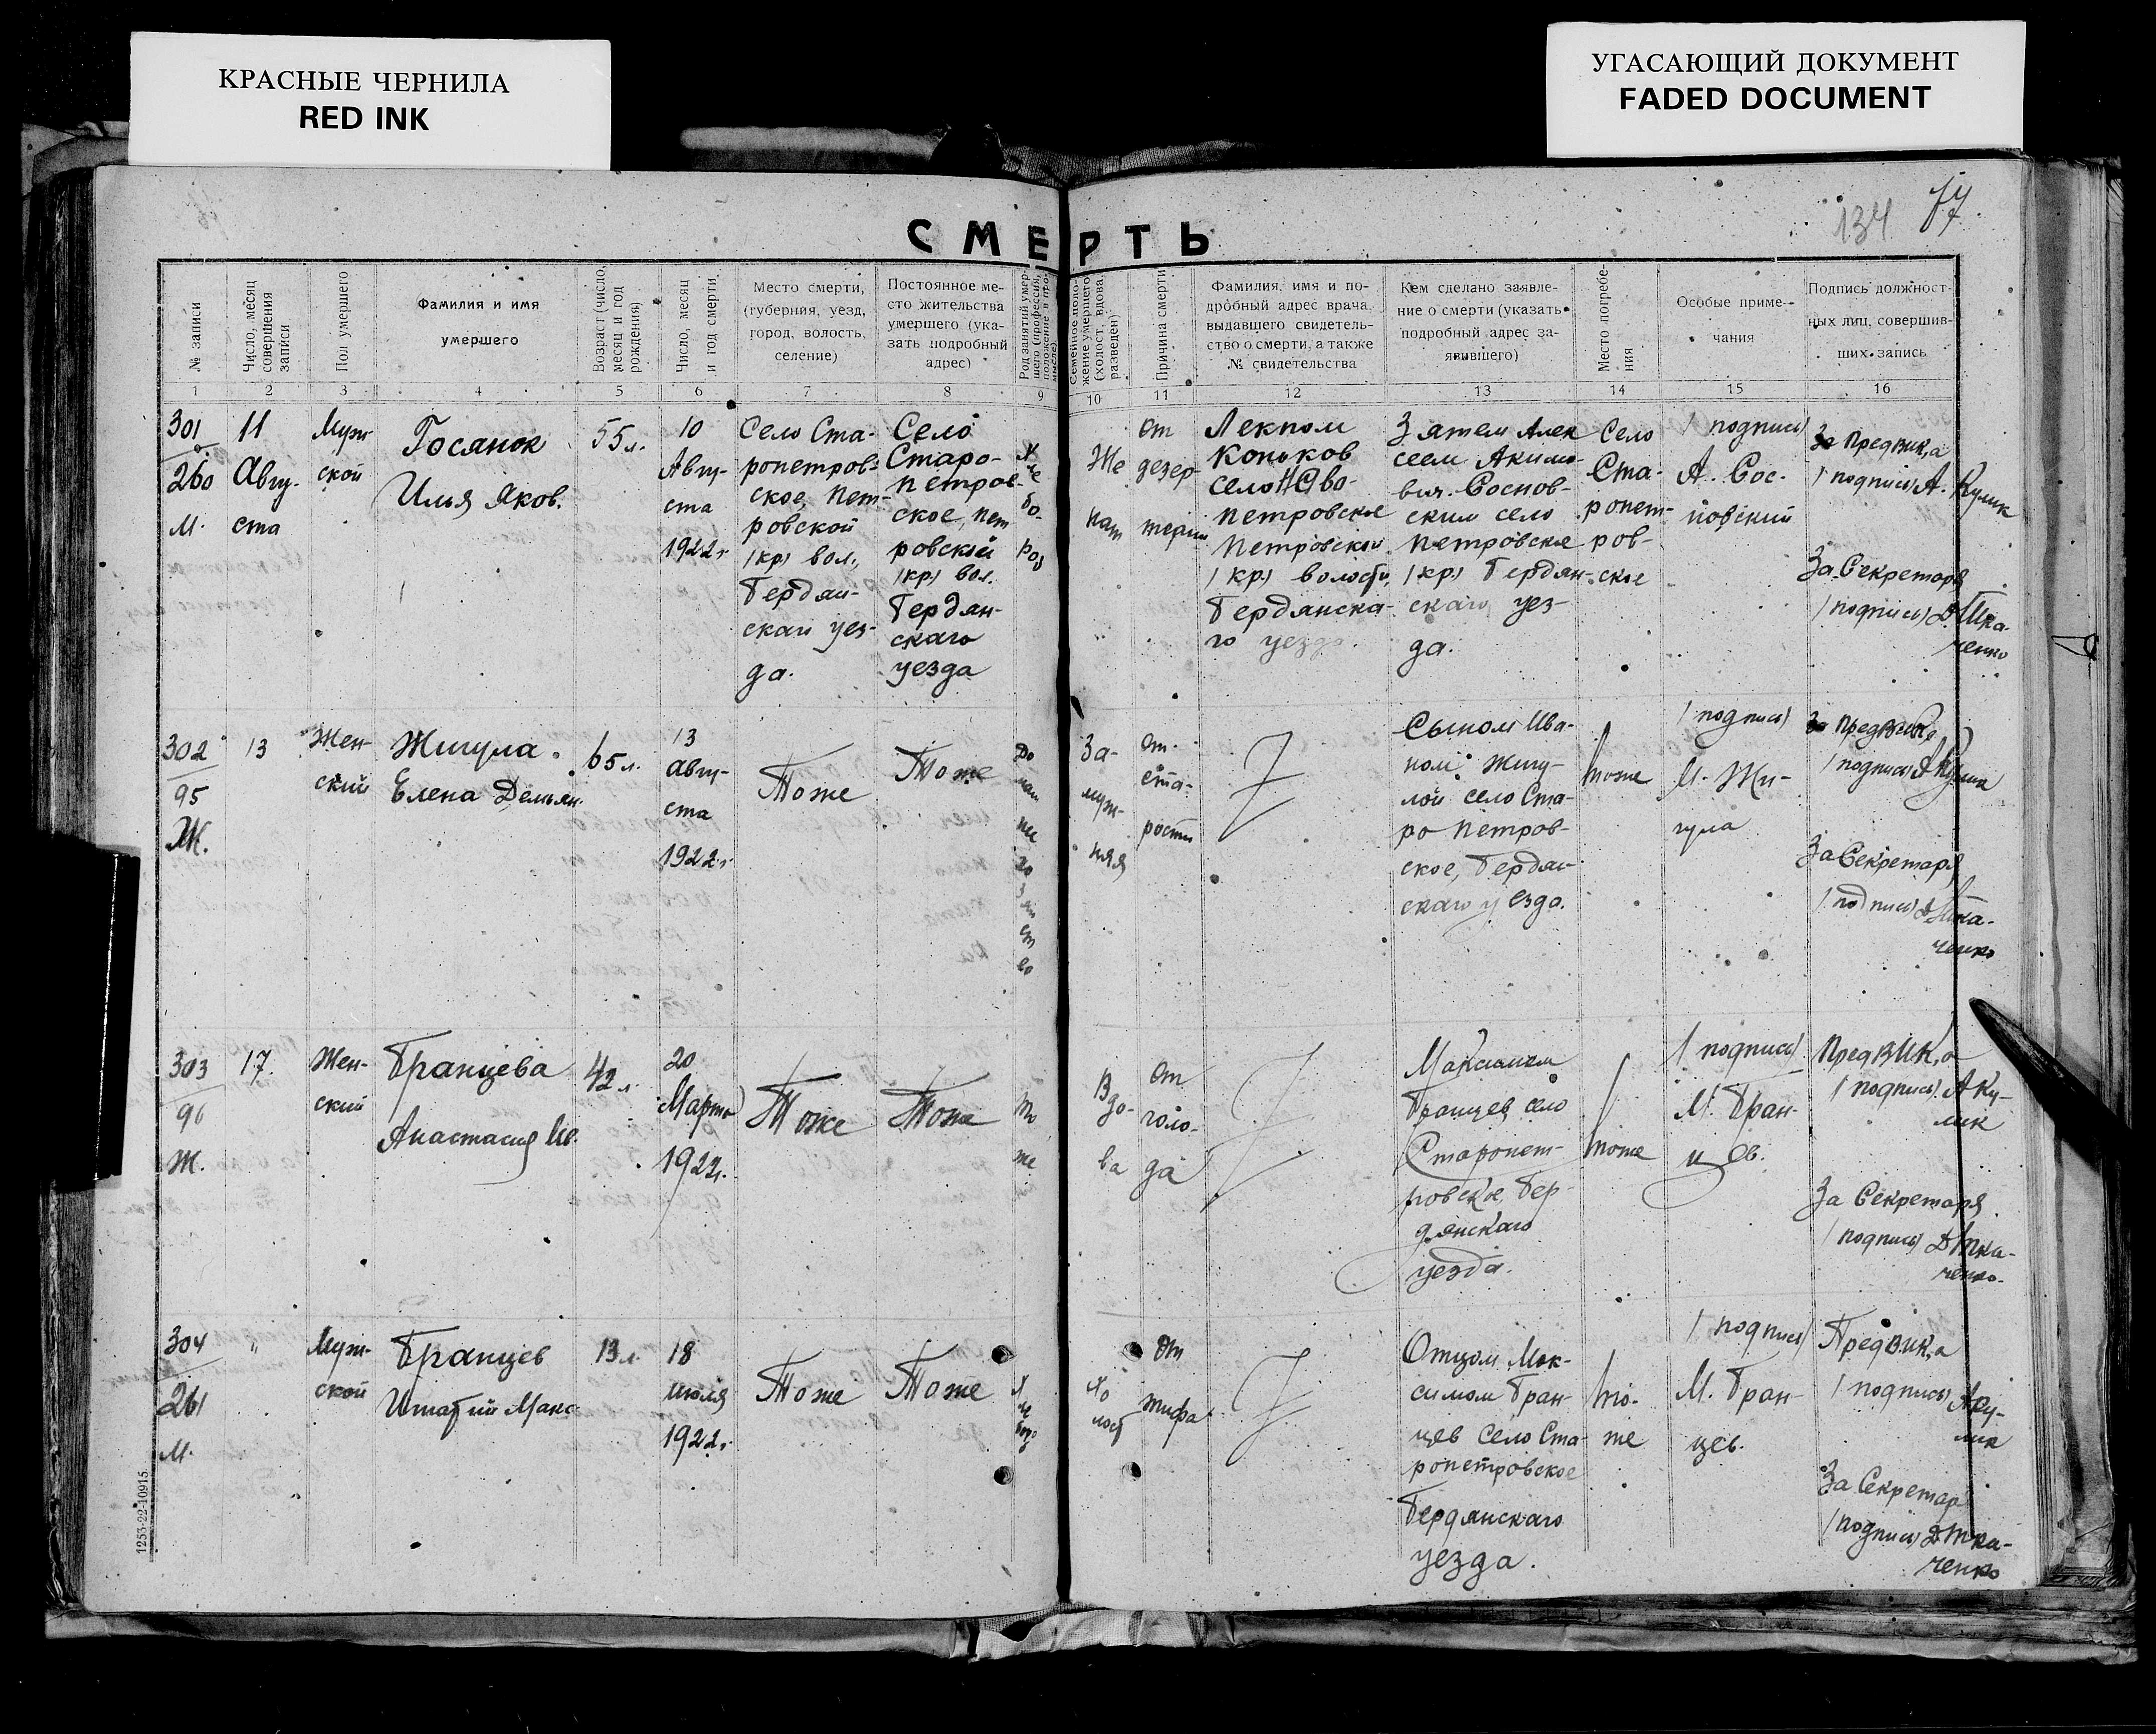 КРАСНЫЕ ЧЕРНИЛА
RED INK
УГАСАЮЩИЙ ДОКУМЕНТ
FADED DOCUMENT
134
77
СМЕРТЬ
№ записи
Число, месяц
совершения
записи
Пол умершего
Фамилия и имя
умершего
Возраст (число,
месяц и год
рождения)
Число, месяц
и год смерти
Место смерти,
(губерния, уезд,
город, волость,
селение)
Постоянное ме-
сто жительства
умершего (ука-
зать подробный
адрес)
Род занятий умер-
шего (профессия,
положение в про-
мысле)
Семейное поло-
жение умершего
(холост, вдова,
разведен)
Причина смерти
Фамилия, имя и по-
дробный адрес врача,
выдавшего свидетель-
ство о смерти, а также
№ свидетельства
Кем сделано заявле-
ние о смерти (указать
подробный адрес за-
явившего)
Место погребе-
ния
Особые приме-
чания
Подпись должност-
ных лиц, совершив-
ших запись
1
2
3
4
5
6
7
8
9
10
11
12
13
14
15
16
301
260
м.
11
Авгу-
ста
Муж-
ской
Госанок
Илья Яков.
55 л.
10
Авгу-
ста
1922 г.
Село Ста-
ропетров-
ское, Пет-
ровской
/кр/ вол.,
Бердян-
скаго уез-
да.
Село
Старо-
петров-
ское, Пет
ровской
/кр/ вол.
Бердян-
скаго
уезда
Х
ле
бо-
роб
Же
нат
от
дезен
терии
Лекпом
Коньков
село Ново-
петровское
Петровской
/кр/ волости
Бердянска-
го уезда.
Зятем Алек
сеем Акимо-
вич. Соснов-
ским село
Петровское
/кр/ Бердян-
скаго уез-
да.
Село
Ста-
ропет-
ров-
ское
/подпись/
А. Сос-
новский
За Предвик,а
/подпись/ А. Кулик
За Секретаря
/подпись/ Д Тка-
ченко
302
95
Ж.
13
Жен-
ский
Жигула
Елена Демьян.
65 л.
13
авгу-
ста
1922 г.
Тоже
Тоже
До
маш
не
хо
зяй
ст
во
За-
муж-
няя
от
ста-
рости
Сыном Ива-
ном Жигу-
лой село Ста-
ро Петров-
ское, Бердян
скаго уезда.
тоже
/подпись/
И. Жи-
гула
За Предвика
/подпись/ А Кулик
За Секретаря
/подпись/ Д Тка-
ченко
303
96
Ж.
17.
Жен-
ский
Бранцева
Анастасия Ив.
42 л.
20
Марта
1922 г.
Тоже
Тоже
То
же
Вдо-
ва
от
голо-
да
Максимом
Бранцев село
Старопет-
ровское, Бер-
дянскаго
уезда.
тоже
/подпись/
М. Бран-
цев.
ПредВИК,а
/подпись/ А Ку-
лик
За Секретаря
/подпись/ Д Тка-
ченко.
304
261
м.
"
Муж-
ской
Бранцев
Игнатий Макс
13 л.
18
июля
1922 г.
Тоже
Тоже
Х
ле
боро
Хо
лост
от
тифа
Отцом Мак-
симом Бран-
цев село Ста-
ропетровское
Бердянскаго
уезда.
то-
же
/подпись/
М. Бран-
цев.
Предвик,а
/подпись/ А Ку-
лик
За Секретар
/подпись/ Д Тка-
ченко
1253-22-10915